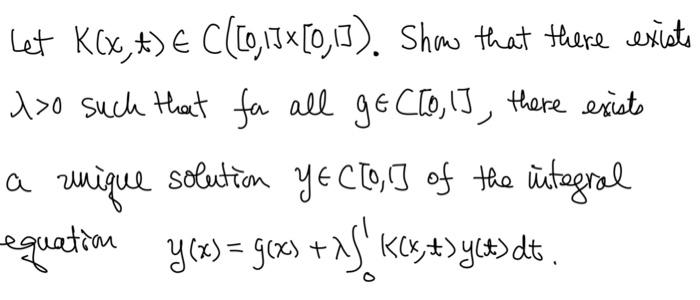 Let K(x,t) ∈ C([0,1]×[0,1]). Show that there exists
λ>0 such that for all g∈C[0,1], there exists
a unique solution y∈C[0,1] of the integral
equation y(x) = g(x) + λ∫₀¹ K(x,t)y(t)dt.